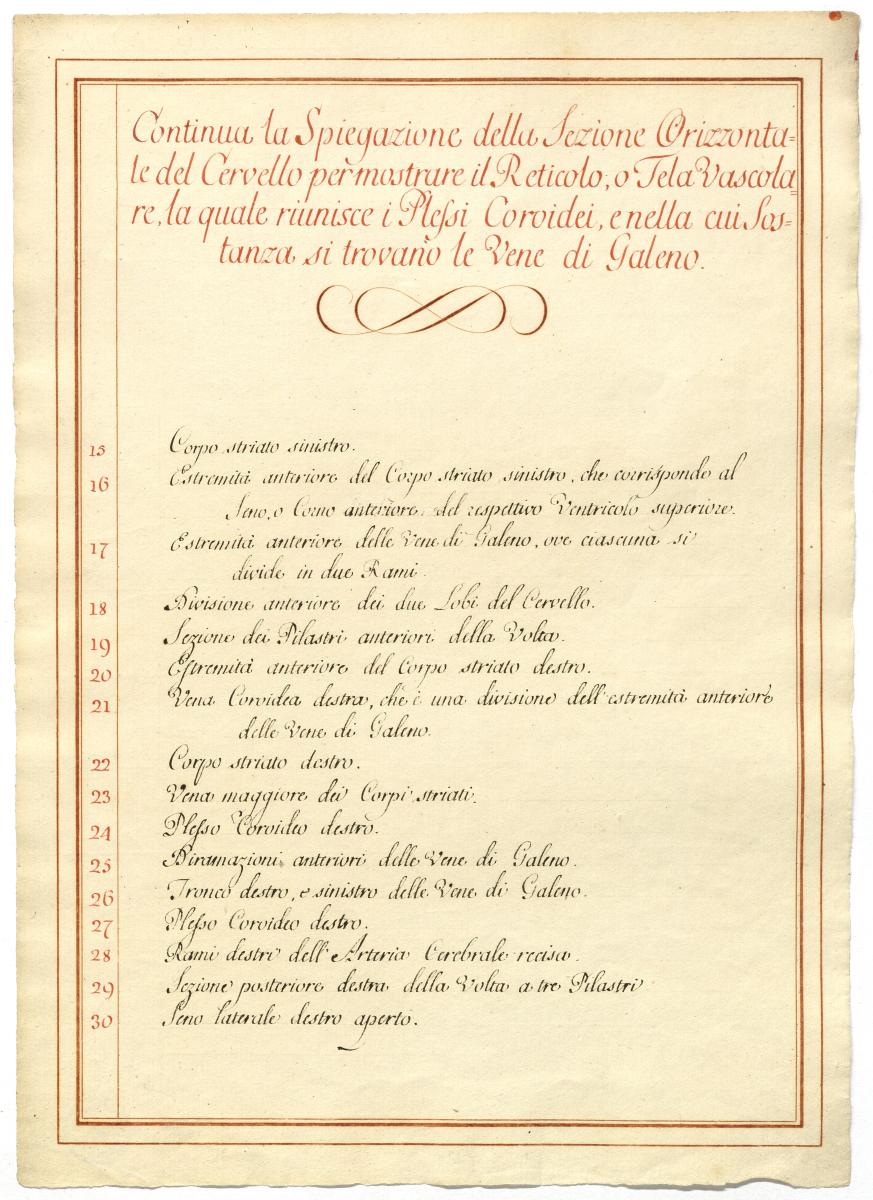 Continua la Spiegazione della Sezione Orizzonta=
le del Cervello per mostrare il Reticolo, o Tela Vascola=
re, la quale riunisce i Plessi Coroidei, e nella cui Sos=
tanza si trovano le Vene di Galeno.
15 Corpo striato sinistro.
16 Estremità anteriore del Corpo striato sinistro, che corrisponde al
Seno, o Corno anteriore del respettivo Ventricolo superiore.
17 Estremità anteriore delle Vene di Galeno, ove ciascuna si
divide in due Rami.
18 Divisione anteriore dei due Lobi del Cervello.
19 Sezione dei Pilastri anteriori della Volta.
20 Estremità anteriore del Corpo striato destro.
21 Vena Coroidea destra, che è una divisione dell'estremità anteriore
delle Vene di Galeno.
22 Corpo striato destro.
23 Vena maggiore dei Corpi striati.
24 Plesso Coroideo destro.
25 Diramazioni anteriori delle Vene di Galeno.
26 Tronco destro, e sinistro delle Vene di Galeno.
27 Plesso Coroideo destro.
28 Rami destri dell'Arteria Cerebrale recisa.
29 Sezione posteriore destra della Volta a tre Pilastri
30 Seno laterale destro aperto.